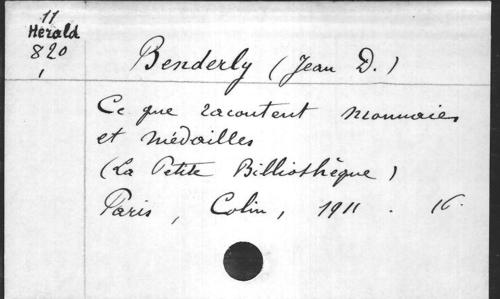 11
Herald
820
1
Benderly (Jean D.)
Ce que racontent monnaies
et médailles
(La Petite Billiothèque)
Paris, Colin, 1911. 16.